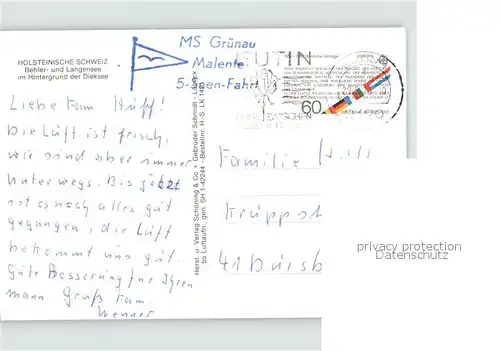 HOLSTEINISCHE SCHWEIZ
Behler- und Langensee
im Hintergrund der Dieksee
MS Grünau
Malente
5-Seen-Fahrt
EUTIN
60
Liebe Fam. Hüff!
Die Luft ist frisch,
wir sind aber immer
Unterwegs. Bis jetzt
ist es noch alles gut
gegangen, die Luft
bekommt uns gut.
Gute Besserung für Ihren
mann Gruß Fam.
Wenner
Herst. u. Verlag Schöning & Co · Gebrüder Schmidt · Lübeck
bs Luftaufn., gen. SH 1-42244 - Bestellnr. H-S. LK 1481
Familie
Krüppst
41 Duisb
privacy protection
Datenschutz